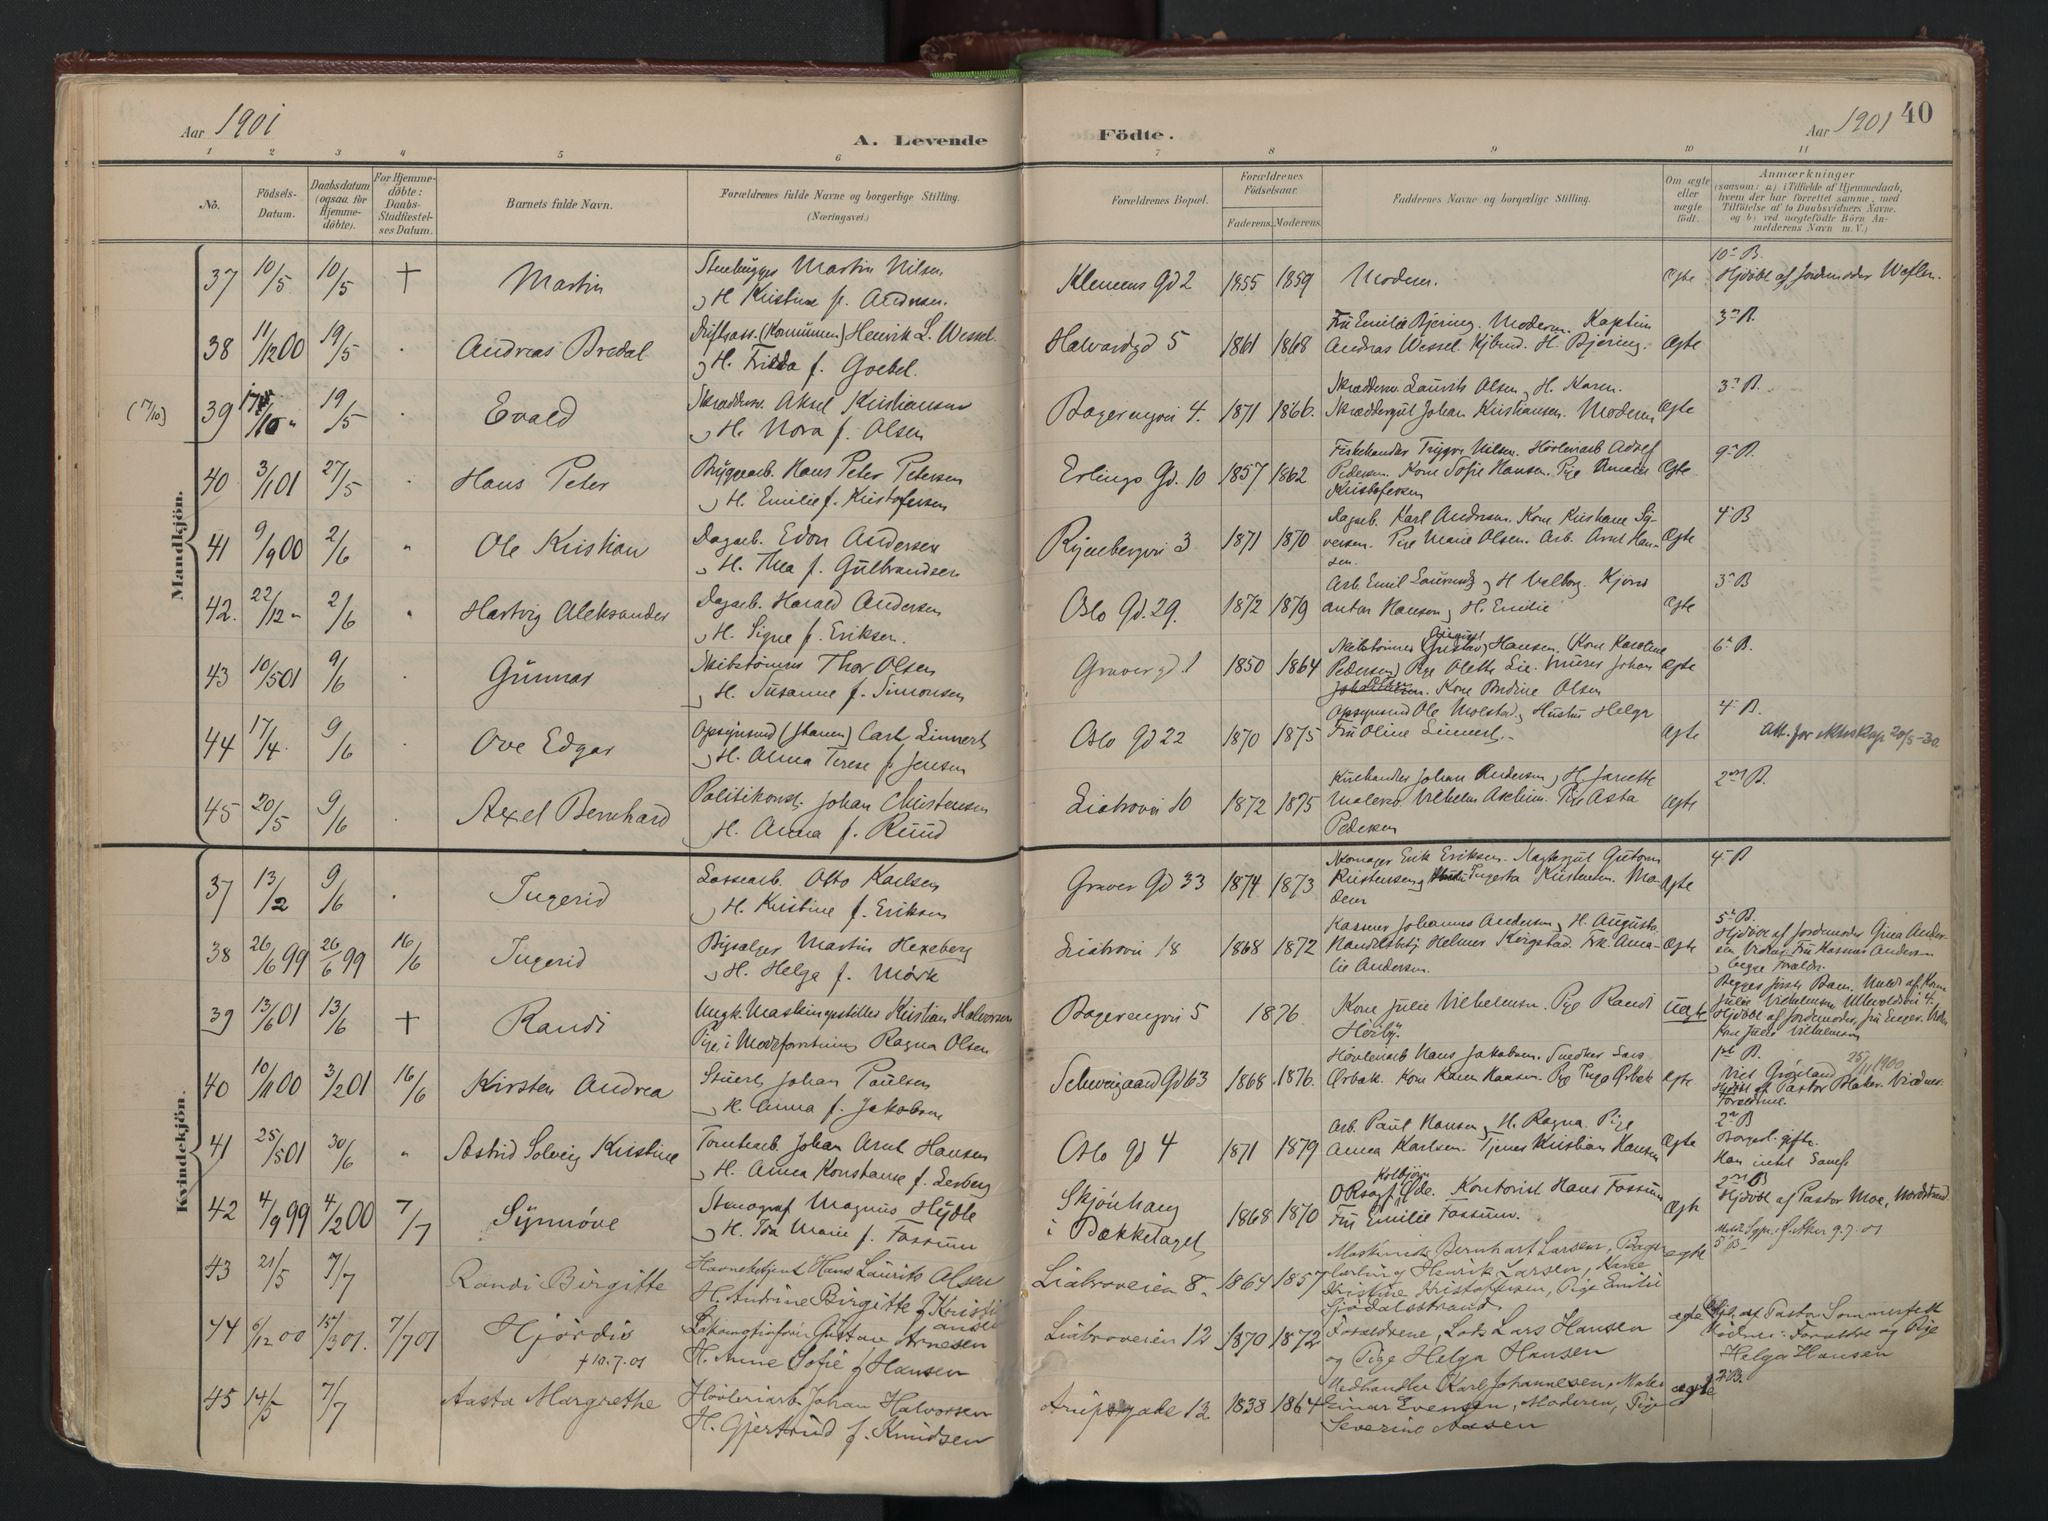 Aar 1901
A. Levende
Födte.
Aar 1901
40
1 2 3 4 5 6 7 8 9 10 11
No.
Födsels-
Datum.
Daabsdatum
(ogsaa for
Hjemme-
döbte).
For Hjemme-
döbte:
Daabs-
Stadfæstel-
ses Datum.
Barnets fulde Navn.
Forældrenes fulde Navne og borgerlige Stilling.
(Næringsvei.)
Forældrenes Bopæl.
Forældrenes
Födselsaar.
Faderens. Moderens.
Faddernes Navne og borgerlige Stilling.
Om ægte
eller
uægte
födt.
Anmærkninger
(saasom: a) i Tilfælde af Hjemmedaab,
hvem der har forrettet samme, med
Tilföielse af to Daabsvidners Navne,
og b) ved uægtefödte Börn An-
melderens Navn m. V.)
Mandkjön.
37 10/5 10/5 + Martin
Martin Nilsen
H. Kristine f. Andersen.
Klemens Gd 2 1855 1859 Moderen. Ægte
10de B.
Hjdøbt af Jordemoder
38 11/12 00 19/5 Andreas Bredal
Henrik L. Wessel
H. Fridda f. Goebel.
Halvardgd 5 1861 1868
Fru Emilie Bjering. Moderen. Kaptein
Andreas Wessel. H. Bjering. Ægte
3de B.
(17/10) 39 19/5 Evald
Aksel Kristiansen
H. Nora f. Olsen
4. 1871 1866.
Laurits Olsen, H. Karen.
Johan Kristiansen. Moderen Ægte
3de B.
40 3/1 01 27/5 Hans Peter
Bryggearb. Hans Peter Petersen
H. Emilie f. Kristofersen
Erlings Gd. 10 1857 1862
Fiskehandler Trygve Nilsen. Høvleriarb Adolf
Pedersen. Kone Sofie Hansen. Pige Amalie
Kristofersen
Ægte
9de B.
41 9/9 00 2/6 Ole Kristian
Dagarb. Edon Andersen
H. Thea f. Gulbrandsen
3 1871 1870
Dagarb. Karl Andersen. Kone Kristiane Sy-
versen. Pige Marie Olsen. Arb. Arnt Han-
sen.
Ægte
4de B
42. 22/12 2/6 Hartvig Aleksander
Dagarb. Harald Andersen
H. Signe f. Eriksen.
Oslo Gd. 29. 1872 1879
Arb Emil H Valborg.
Anton Hansen, H. Emilie
Ægte
3de B
43 10/5 01 9/6 Gunnar
Skibstømmer Thor Olsen
H. Susanne f. Simonsen
Graver gd. 1 1850 1864
Skibstømmer Gustav Hansen. (Kone Karoline
Pedersen) Pige Olette Lie. Murer Johan
Kone Olsen
Ægte
6te B.
44 17/4. 9/6 Ove Edgar
Carl Linnert
H. Alma Terese f. Jensen
Oslo Gd 22 1870 1875
Ole Molstad, Hustru Helga
Fru Oline Linnert.
Ægte
4de B.
Att. for ekteskap 20/5-30.
45 20/5 9/6 Axel Bernhard
Politikonst. Johan Christensen
H. Anna f. Ruud
Liabrovei 10 1872 1875
Johan Andersen, H. Janette
Maler Vilhelm Pige Asta
Pedersen
Ægte
2den B.
Kvindekjön.
37 13/2 9/6 Ingerid
Lossearb. Otto Karlsen
H. Kristine f. Eriksen
Graver Gd 33 1874 1873
Skomager Erik Eriksen. Guttorm
Kristensen, Ingeria Kristensen. Mo-
deren
Ægte
4de B
38 26/6 99 26/6 99 16/6 Ingerid
Martin Hexeberg
H. Helga f. Mørk
Liabrovei 18 1868 1872
Kasserer Johannes Andersen, H. Augusta.
Helmer Kirgestad. Frk. Ama-
lie Andersen.
Ægte
5te B.
Hjdøbt af Jordemoder Gina Ander-
sen Vidner: Fru Kasserer Andersen
, begge Forældr.
39 13/6 01 13/6 + Randi
Ungk. Maskinpudser Kristian Halvorsen
Pige, i Modeforretning Ragna Olsen
5 1876
Kone Julie Vilhelmsen. Pige Randi
Uægte
Begges første Barn. Meldt af Kone
Julie Vilhelmsen 4.
Hjdøbt af Jordemoder, fru Enger. Vidn
Kone Julie Vilhelmsen
40 10/11 00 3/2 01 16/6 Kirsten Andrea
Stuert Johan Paulsen
H. Anna f. Jakobsen
Schweigaard Gd 63 1868 1876.
Høvleriarb Hans Jakobsen. Snedker Lars
Ørbæk. Kone Karen Hansen. Pige Inga Ørbæk
Ægte
1ste B.
Viet Grønland 25/11 1900
Hjdøbt af Pastor Vidner:
Forældrene.
41 25/5 01 30/6 Astrid Solveig Kristine
Tomtearb. Johan Arnt Hansen
H. Anna Konstanse f. Lesberg
Oslo gd 4 1871 1879
Arb. Paul Hansen, H. Ragna. Pige
Anna Karlsen. Tjener Kristian Hansen
Ægte
2de B
Borgerl. gifte.
Han intet Samf.
42 4/9 99 4/2 00 7/7 Synnøve
Stenograf Magnus Hydle
H. Ida Marie f. Fossum
Skjønhaug
i Bækkelaget
1868 1870
Kolbjørn
Kontorist Hans Fossum
Fru Emilie Fossum.
Ægte
2den B
Hjdøbt af Pastor Moe, Nordstrand.
Aker 9.7.01
43 21/5 7/7 Randi Birgitte
Havnebetjent Hans Laurits Olsen
H. Andrine Birgitte f. Kristi
ansen
Liabroveien 8 1864 1857
Maskinist Bernhart Larsen, Bager
lærling Henrik Larsen, Kone
Kristine Kristoffersen, Pige Emilie
Sjødalsstrand.
ægte
5te B.
44 6/12 00 15/3 01. 7/7 01 Hjørdis
+ 10.7.01
Lokomotivfører Gustav Arnesen
H. Anne Sofie f. Hansen
Liabroveien 12 1870 1872
Forældrene, Lods Lars Hansen
og Pige Helga Hansen
ægte
Hj. af Pastor Sommerfelt
Vidner: Forældre og Pige
Helga Hansen
45 14/5 7/7 Aasta Margrethe
Høvleriarb. Johan Halvorsen
H. Gjertrud f. Knudsen
Arupsgade 12 1838 1864
Vedhandler Karl Johannesen, Maler
Einar Evensen, Moderen, Pige
Severine Aasen
ægte
2 B.